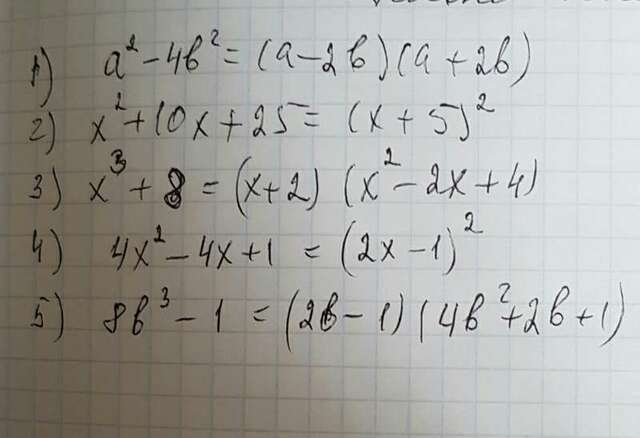 1) a² - 4b² = (a - 2b)(a + 2b)
2) x² + 10x + 25 = (x + 5)²
3) x³ + 8 = (x + 2) (x² - 2x + 4)
4) 4x² - 4x + 1 = (2x - 1)²
5) 8b³ - 1 = (2b - 1) (4b² + 2b + 1)